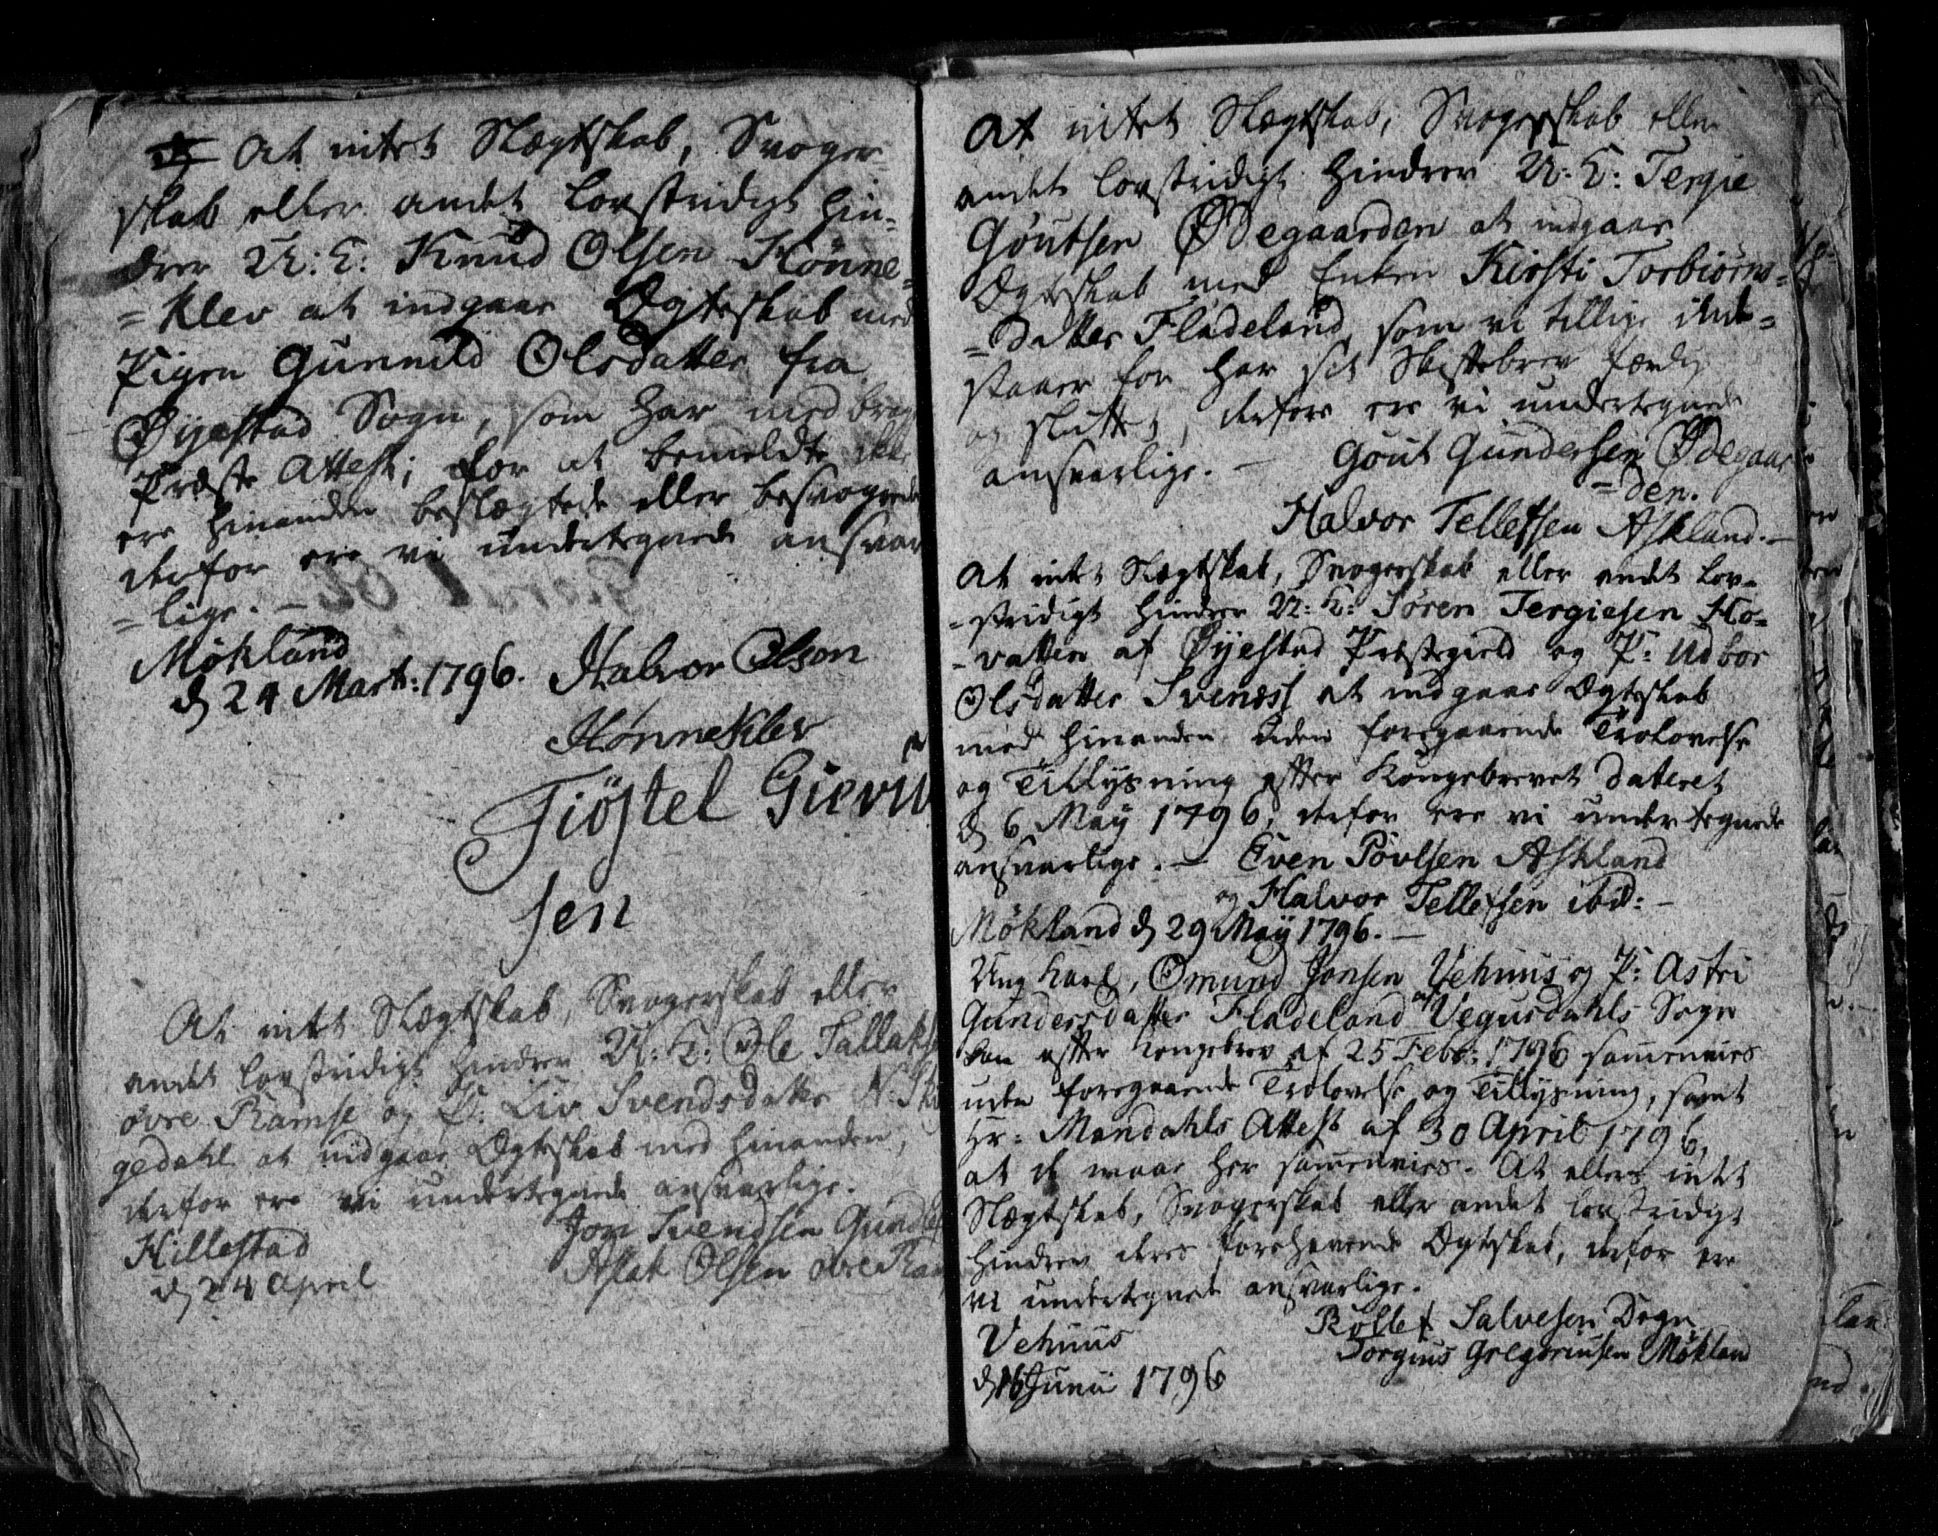 At intet Slægtskab, Svoger-
skab eller andet lovstridigt hin-
drer U: K: Knud Olsen Hønne-
= klev at indgaae Ægteskab med
Pigen Gunnild Olsdatter fra
Øyestad Sogn, som har medbragt
Præste Attest; for at bemeldte ikke
ere hinanden beslægtede eller besvogrede
derfor ere vi undertegnede ansvar
= lige. —
Møkland
d 24 Mart: 1796. Halvor Olson
Hønneklev
Tiøstel Giervu
sen
At intet Slægtskab, Svogerskab eller
andet lovstridigt hindrer U: K: Ole Tallaks
øvre Ramse og P: Liv Svendsdatter N:
gedahl at indgaae Ægteskab med hinanden,
derfor ere vi undertegnede ansvarlige.
Jon Svendsen
Hillestad
Aslak Olsen øvre Ram
d 24 April
At intet Slægtskab, Svogerskab eller
andet lovstridigt hindrer U: K: Tergie
Goutsen Ødegaarden at indgaae
Ægteskab med Enken Kirsti Torbiørns-
= datter Fladeland, som vi tillige inde=
staaer for har sit Skiftebrev færdig
og sluttet, derfore ere vi undertegnede
ansvarlige. — Gout Gundersen Ødegaar
= den.
Halvor Tellefsen Askland. —
At intet Slægtskab, Svogerskab eller andet lov-
- stridigt hindrer U: K: Søren Tergiesen Ho-
- vatten af Øyestad Præstegield og P: Udbor
Olsdatter Svenæss at indgaae Ægteskab
med hinanden uden foregaaende Trolovelse
og Tillysning efter Kongebrevet dateret
d 6 May 1796, derfor ere vi undertegnede
ansvarlige. — Even Povlsen Askland
og Halvor Tellefsen ibid: —
Møkland d 29 May 1796. —
Ung karl, Omund Jonsen Vehuus og P: Astri
Gundersdatter Fladeland af Vegusdahls Sogn
kan efter Kongebrev af 25 Febr: 1796 sammenvies
uden foregaaende Trolovelse og Tillysning, samt
Hr: Mandahls Attest af 30 April 1796,
at de maae her sammenvies. At ellers intet
Slægtskab, Svogerskab eller andet lovstridigt
hindrer deres forehavende Ægteskab, derfor ere
vi undertegnede ansvarlige.
Vehuus
Rollef Salvesen Degn
Jorgius Gregoriusen Møkland
d 16 Junii 1796